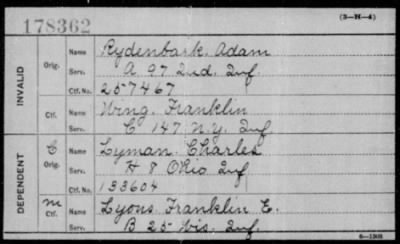 178362
(3-H-4)
INVALID
Orig.
Name Rydenbark, Adam
Serv. A 97 Ind. Inf.
Ctf. No. 257467
Ctf.
Name Wing, Franklin
Serv. C 147 N.Y. Inf.
DEPENDENT
C
Orig.
Name Lyman, Charles
Serv. H 8 Ohio Inf.
Ctf. No. 133604
m
Ctf.
Name Lyons, Franklin E.
Serv. B 25 Wis. Inf.